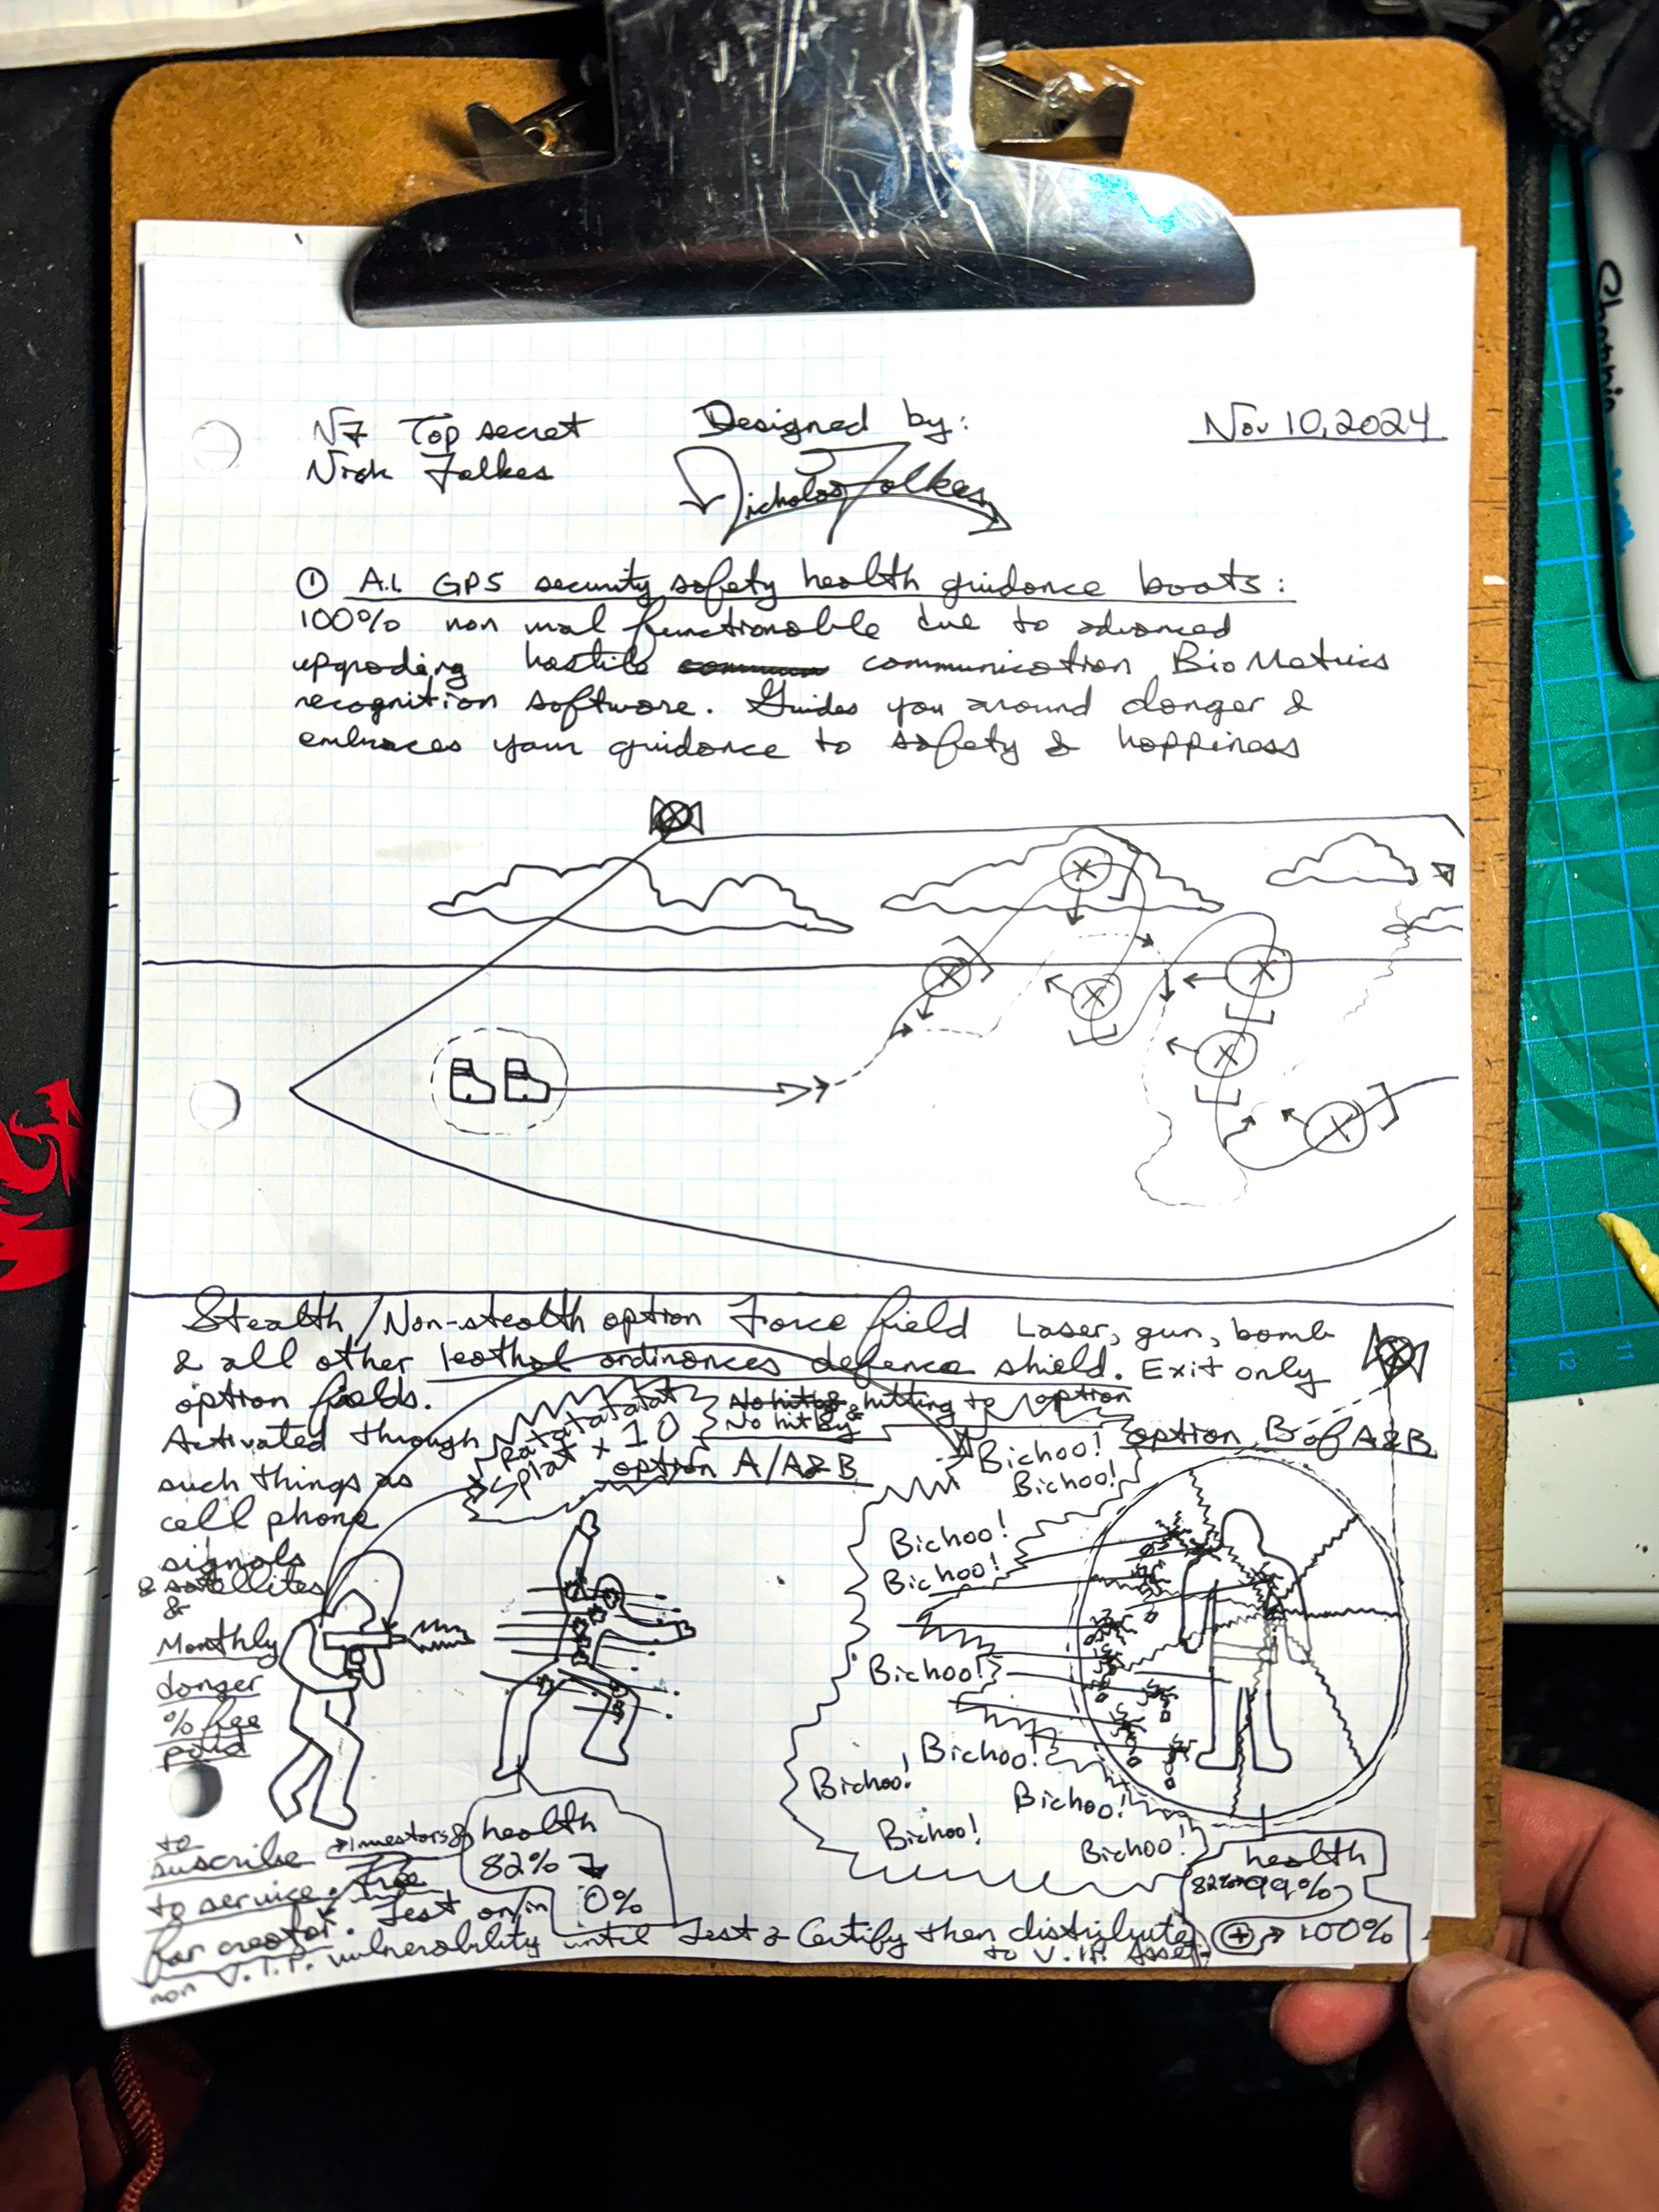 N7 Top secret
Nick Folkes
Designed by:
Nicholas Folkes
Nov 10, 2024
① A.I. GPS security safety health guidance boots:
100% non mal functionable due to advanced
upgrading hostile communication BioMetrics
recognition software. Guides you around danger &
embraces your guidance to safety & happiness
Stealth/Non-stealth option Force field Laser, gun, bomb
& all other leathal ordinances defence shield. Exit only
option fields.
Activated through
such things as
cell phone
signals
& satellites
&
Monthly
danger
% fee
paid
to
suscribe
to service. free
for creator.
→ Investors &
Test on/in
non V.I.P. vulnerability until Test & Certify then distribute
to V.I.P. Assets
Ratatatatatat
Splat x 10
No hit by &
hitting to option
option A/A&B
option B of A&B
Bichoo!
Bichoo!
Bichoo!
Bichoo!
Bichoo!
Bichoo!
Bichoo!
Bichoo!
Bichoo!
Bichoo!
health
82%
0%
health
82%→99%
100%
Sharpie
12
11